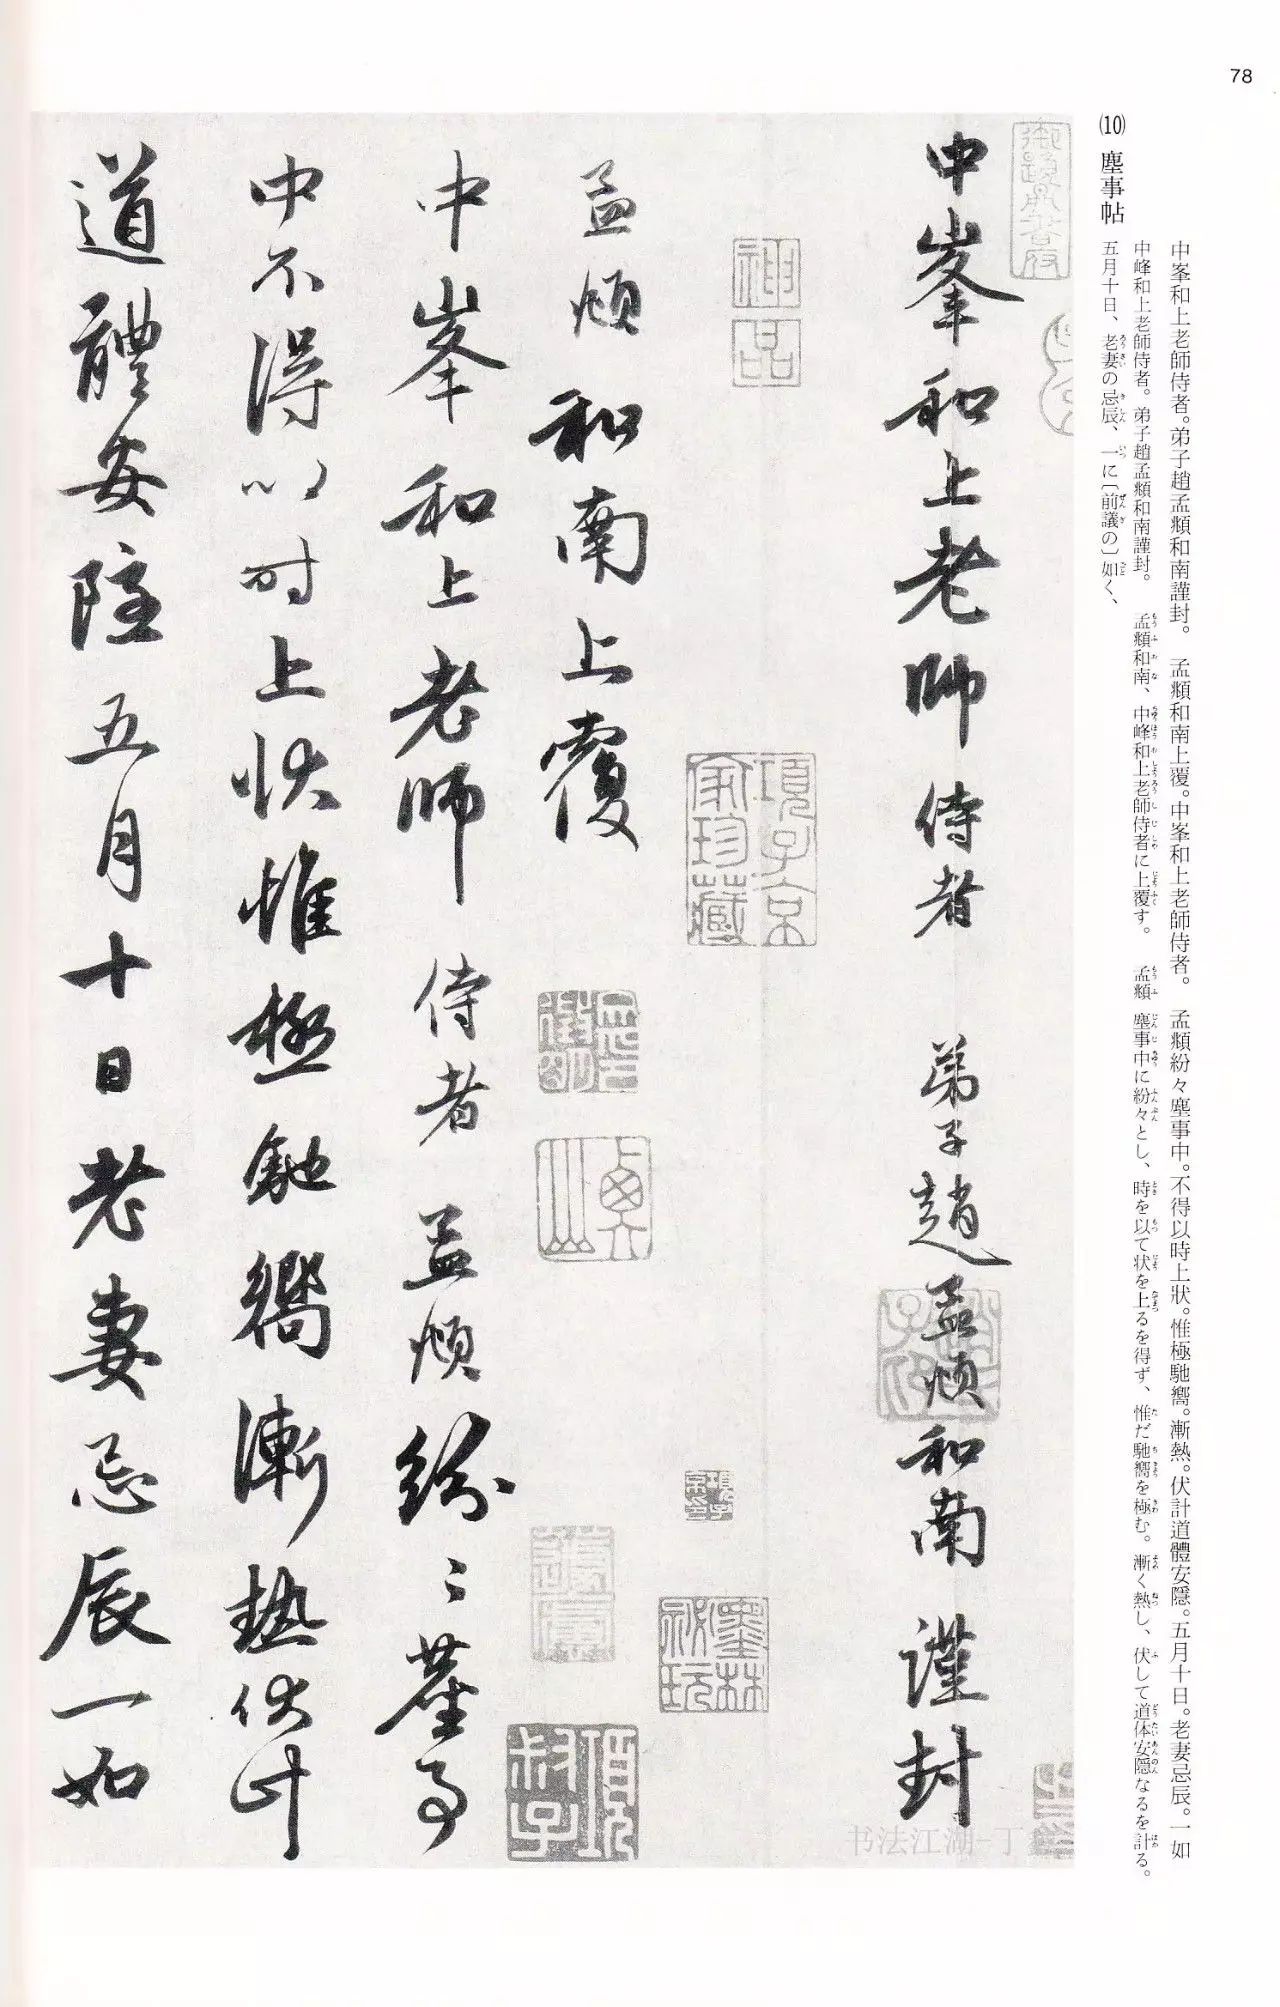 78
(10) 塵事帖
中峯和上老師侍者。弟子趙孟頫和南謹封。 孟頫和南上覆。中峯和上老師侍者。 孟頫紛々塵事中。不得以時上狀。惟極馳嚮。漸熱。伏計道體安隱。五月十日。老妻忌辰。一如
中峰和上老師侍者。弟子趙孟頫和南謹封。 孟頫和南、中峰和上老師侍者に上覆す。 孟頫 塵事中に紛々とし、時を以て状を上るを得ず、惟だ馳嚮を極む。漸く熱し、伏して道体安隠なるを計る。
五月十日、老妻の忌辰、一に〔前議の〕如く、
中峯和上老師侍者 弟子趙孟頫和南謹封
神品
項子京家珍藏
墨林祕玩
孟頫和南上覆
項叔子
中峯和上老師侍者孟頫紛〻塵事
中不得以时上狀惟極馳嚮漸熱伏計
道體安隱五月十日老妻忌辰一如
书法江湖-丁